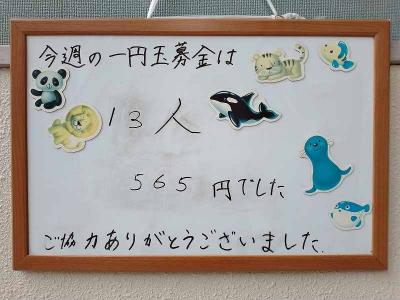 今週の一円玉募金は
13人
565円でした
ご協力ありがとうございました.